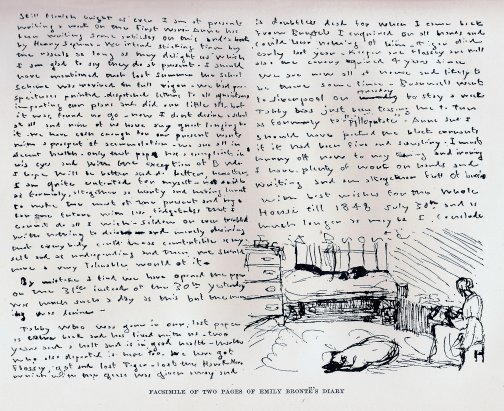 Still March weight as ever I am at present
writing a work on the First Wars - Anne has
been writing some articles on this and a book
by Henry Sophona - We intend sticking firm by
the rascals as long as they delight us which
I am glad to say they do at present - I should
have mentioned that last summer the school
scheme was revived in full vigor - we had pro-
spectuses printed, despatched letters to all
imparting our plans and did our little all - but
it was found no go - now I dont desire a school
at all and none of us have any great longing for
it. We have cash enough for our present wants
with a prospect of accumulation - we are all in
decent health - only that papa has a complaint in
his eyes and with the exception of B who
I hope will be better and do better, hereafter.
I am quite contented for myself - not as idle
as formerly, altogether as hearty and having learnt
to make the most of the present and
for the future with
seldom or ever troubled
with nothing to do and merely desiring
that every body could be as comfortable as my-
self and as undesponding and then we should
have a very tolerable world of it -
By mistake I find we have opened the paper
on the 31st instead of the 30th yesterday
was much such a day as this but the morn-
ing was divine -
Tabby who was gone in our last paper
is come back and has lived with us - two
years and a half and is in good health - Martha
who also departed is here too. We have got
Flossey, got and lost Tiger - lost the Hawk Nero
which with the geese was given away and
is doubtless dead for when I came back
from Brussels I enquired on all hands and
could hear nothing of him -
early last year - Keeper and Flossey are well
also the canary acquired 4 years since
We are now all at home and likely to
be there some time - Branwell went
to Liverpool on Tuesday to stay a week
Tabby has just been teasing me to turn
as formerly to "pilloputate". Anne and I
should have picked the black currants
if it had been fine and sunshiny. I must
hurry off now to my turning and ironing
I have plenty of work on hands and
writing and am altogether full of business
with best wishes for the whole
House till 1848 July 30th and as
much longer as may be I conclude
FACSIMILE OF TWO PAGES OF EMILY BRONTË'S DIARY